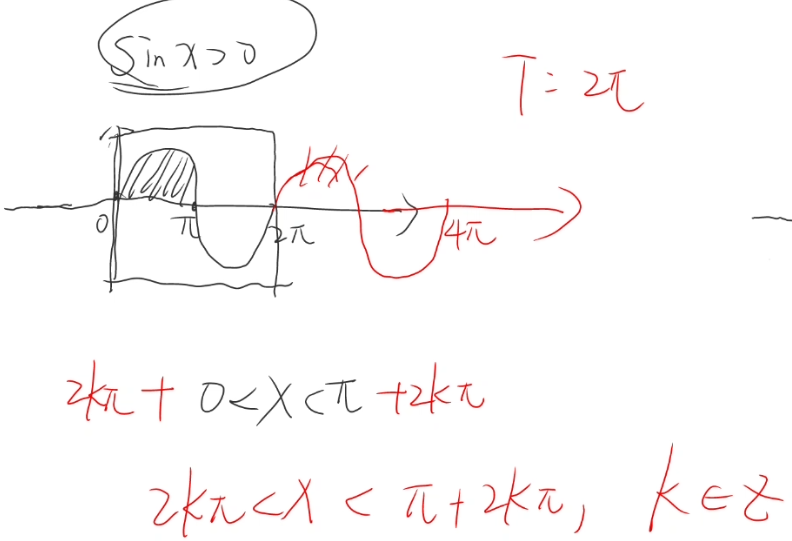 sin x > 0
T = 2π
0 π 2π 4π
2kπ + 0 < x < π + 2kπ
2kπ < x < π + 2kπ, k ∈ Z